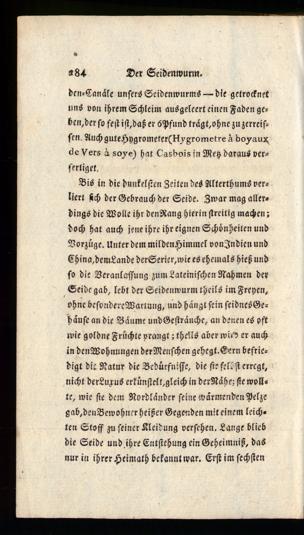 284 Der Seidenwurm.
den-Canäle unsers Seidenwurms — die getrocknet
uns von ihrem Schleim ausgeleert einen Faden ge-
ben, der so fest ist, daß er 6 Pfund trägt, ohne zu zerreis-
sen. Auch gute Hygrometer (Hygrometre à boyaux
de Vers à soye) hat Casbois in Metz daraus ver-
fertiget.
Bis in die dunkelsten Zeiten des Alterthums ver-
liert sich der Gebrauch der Seide. Zwar mag aller-
dings die Wolle ihr den Rang hierin streitig machen;
doch hat auch jene ihre ihr eignen Schönheiten und
Vorzüge. Unter dem milden Himmel von Indien und
China, dem Lande der Serier, wie es ehemals hieß und
so die Veranlassung zum Lateinischen Nahmen der
Seide gab, lebt der Seidenwurm theils im Freyen,
ohne besondere Wartung, und hängt sein seidnes Ge-
häuse an die Bäume und Gesträuche, an denen es oft
wie goldne Früchte prangt; theils aber wird er auch
in den Wohnungen der Menschen gehegt. Gern befrie-
digt die Natur die Bedürfnisse, die sie selbst erregt,
nicht der Luxus erkünstelt, gleich in der Nähe; sie woll-
te, wie sie dem Nordländer seine wärmenden Pelze
gab, den Bewohner heißer Gegenden mit einem leich-
ten Stoff zu seiner Kleidung versehen. Lange blieb
die Seide und ihre Entstehung ein Geheimniß, das
nur in ihrer Heimath bekannt war. Erst im sechsten